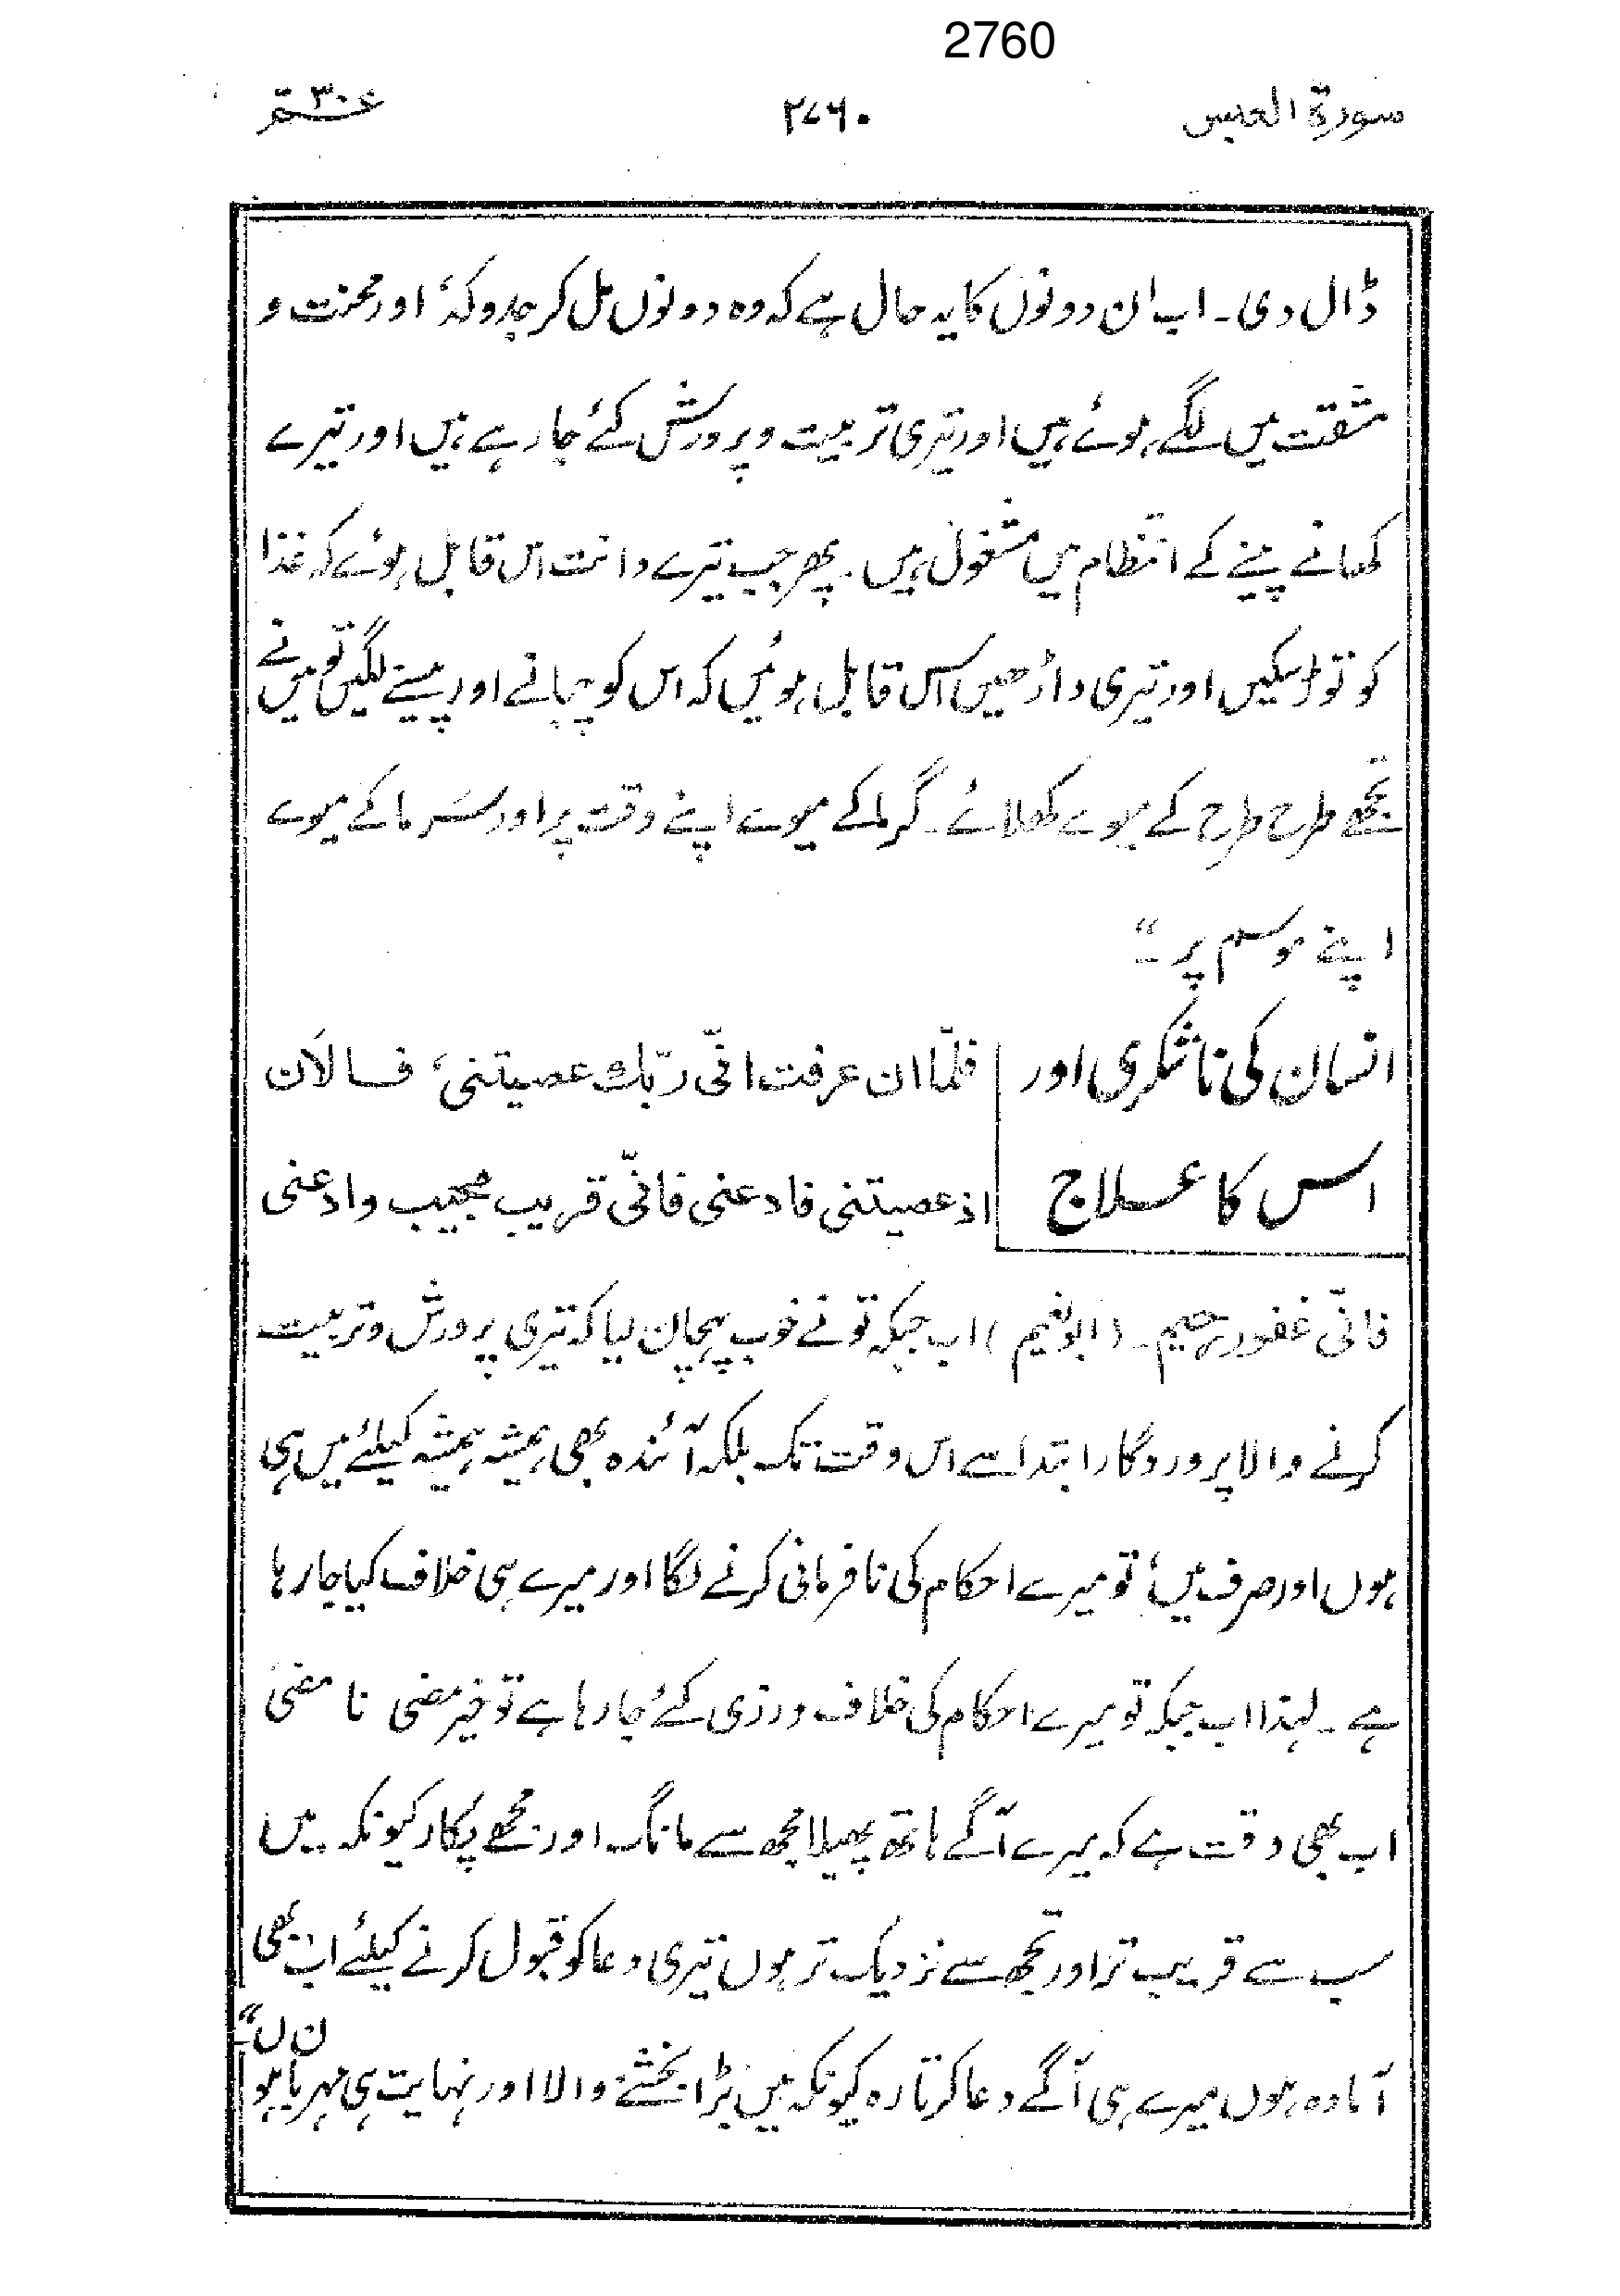 2760
سورۃ العبس
۲۷۶۰
عـــمّ ۳۰
ڈال دی۔ اب ان دونوں کا یہ حال ہے کہ وہ دونوں مل کر جدوکد اور محنت و
مشقت میں لگے ہوئے ہیں اور تیری تربیت و پرورش کئے جا رہے ہیں اور تیرے
کھانے پینے کے انتظام میں مشغول ہیں۔ پھر جب تیرے دانت اس قابل ہوئے کہ غذا
کو توڑ سکیں اور تیری داڑھیں اس قابل ہوئیں کہ اس کو چبانے اور پیسنے لگیں تو میں نے
تجھے طرح طرح کے میوے کھلائے۔ گرما کے میوے اپنے وقت پر اور سَرما کے میوے
اپنے موسم پر ۔“
انسان کی ناشکری اور
اس کا عـــلاج
فلمّا ان عرفت انّی ربّك عصیتنی، فــالاٰن
اذ عصیتنی فادعنی فانّی قریب مجیب وادعنی
فانّی غفور رحیم۔ (ابونعیم) اب جبکہ تو نے خوب پہچان لیا کہ تیری پرورش و تربیت
کرنے والا پروردگار ابتدا سے اس وقت تک بلکہ آئندہ بھی ہمیشہ ہمیشہ کیلئے میں ہی
ہوں اور صرف میں، تو میرے احکام کی نافرمانی کرنے لگا اور میرے ہی خلاف کیا جا رہا
ہے۔ لہذا اب جبکہ تو میرے احکام کی خلاف ورزی کئے جا رہا ہے تو خیر مضی نا مضیٰ
اب بھی وقت ہے کہ میرے آگے ہاتھ پھیلا مجھ سے مانگ اور مجھے پکار کیونکہ میں
سب سے قریب تر اور تجھ سے نزدیک تر ہوں تیری دعا کو قبول کرنے کیلئے اب بھی
آمادہ ہوں میرے ہی آگے دعا کرتا رہ کیونکہ میں بڑا بخشنے والا اور نہایت ہی مہربان ہوں“۔